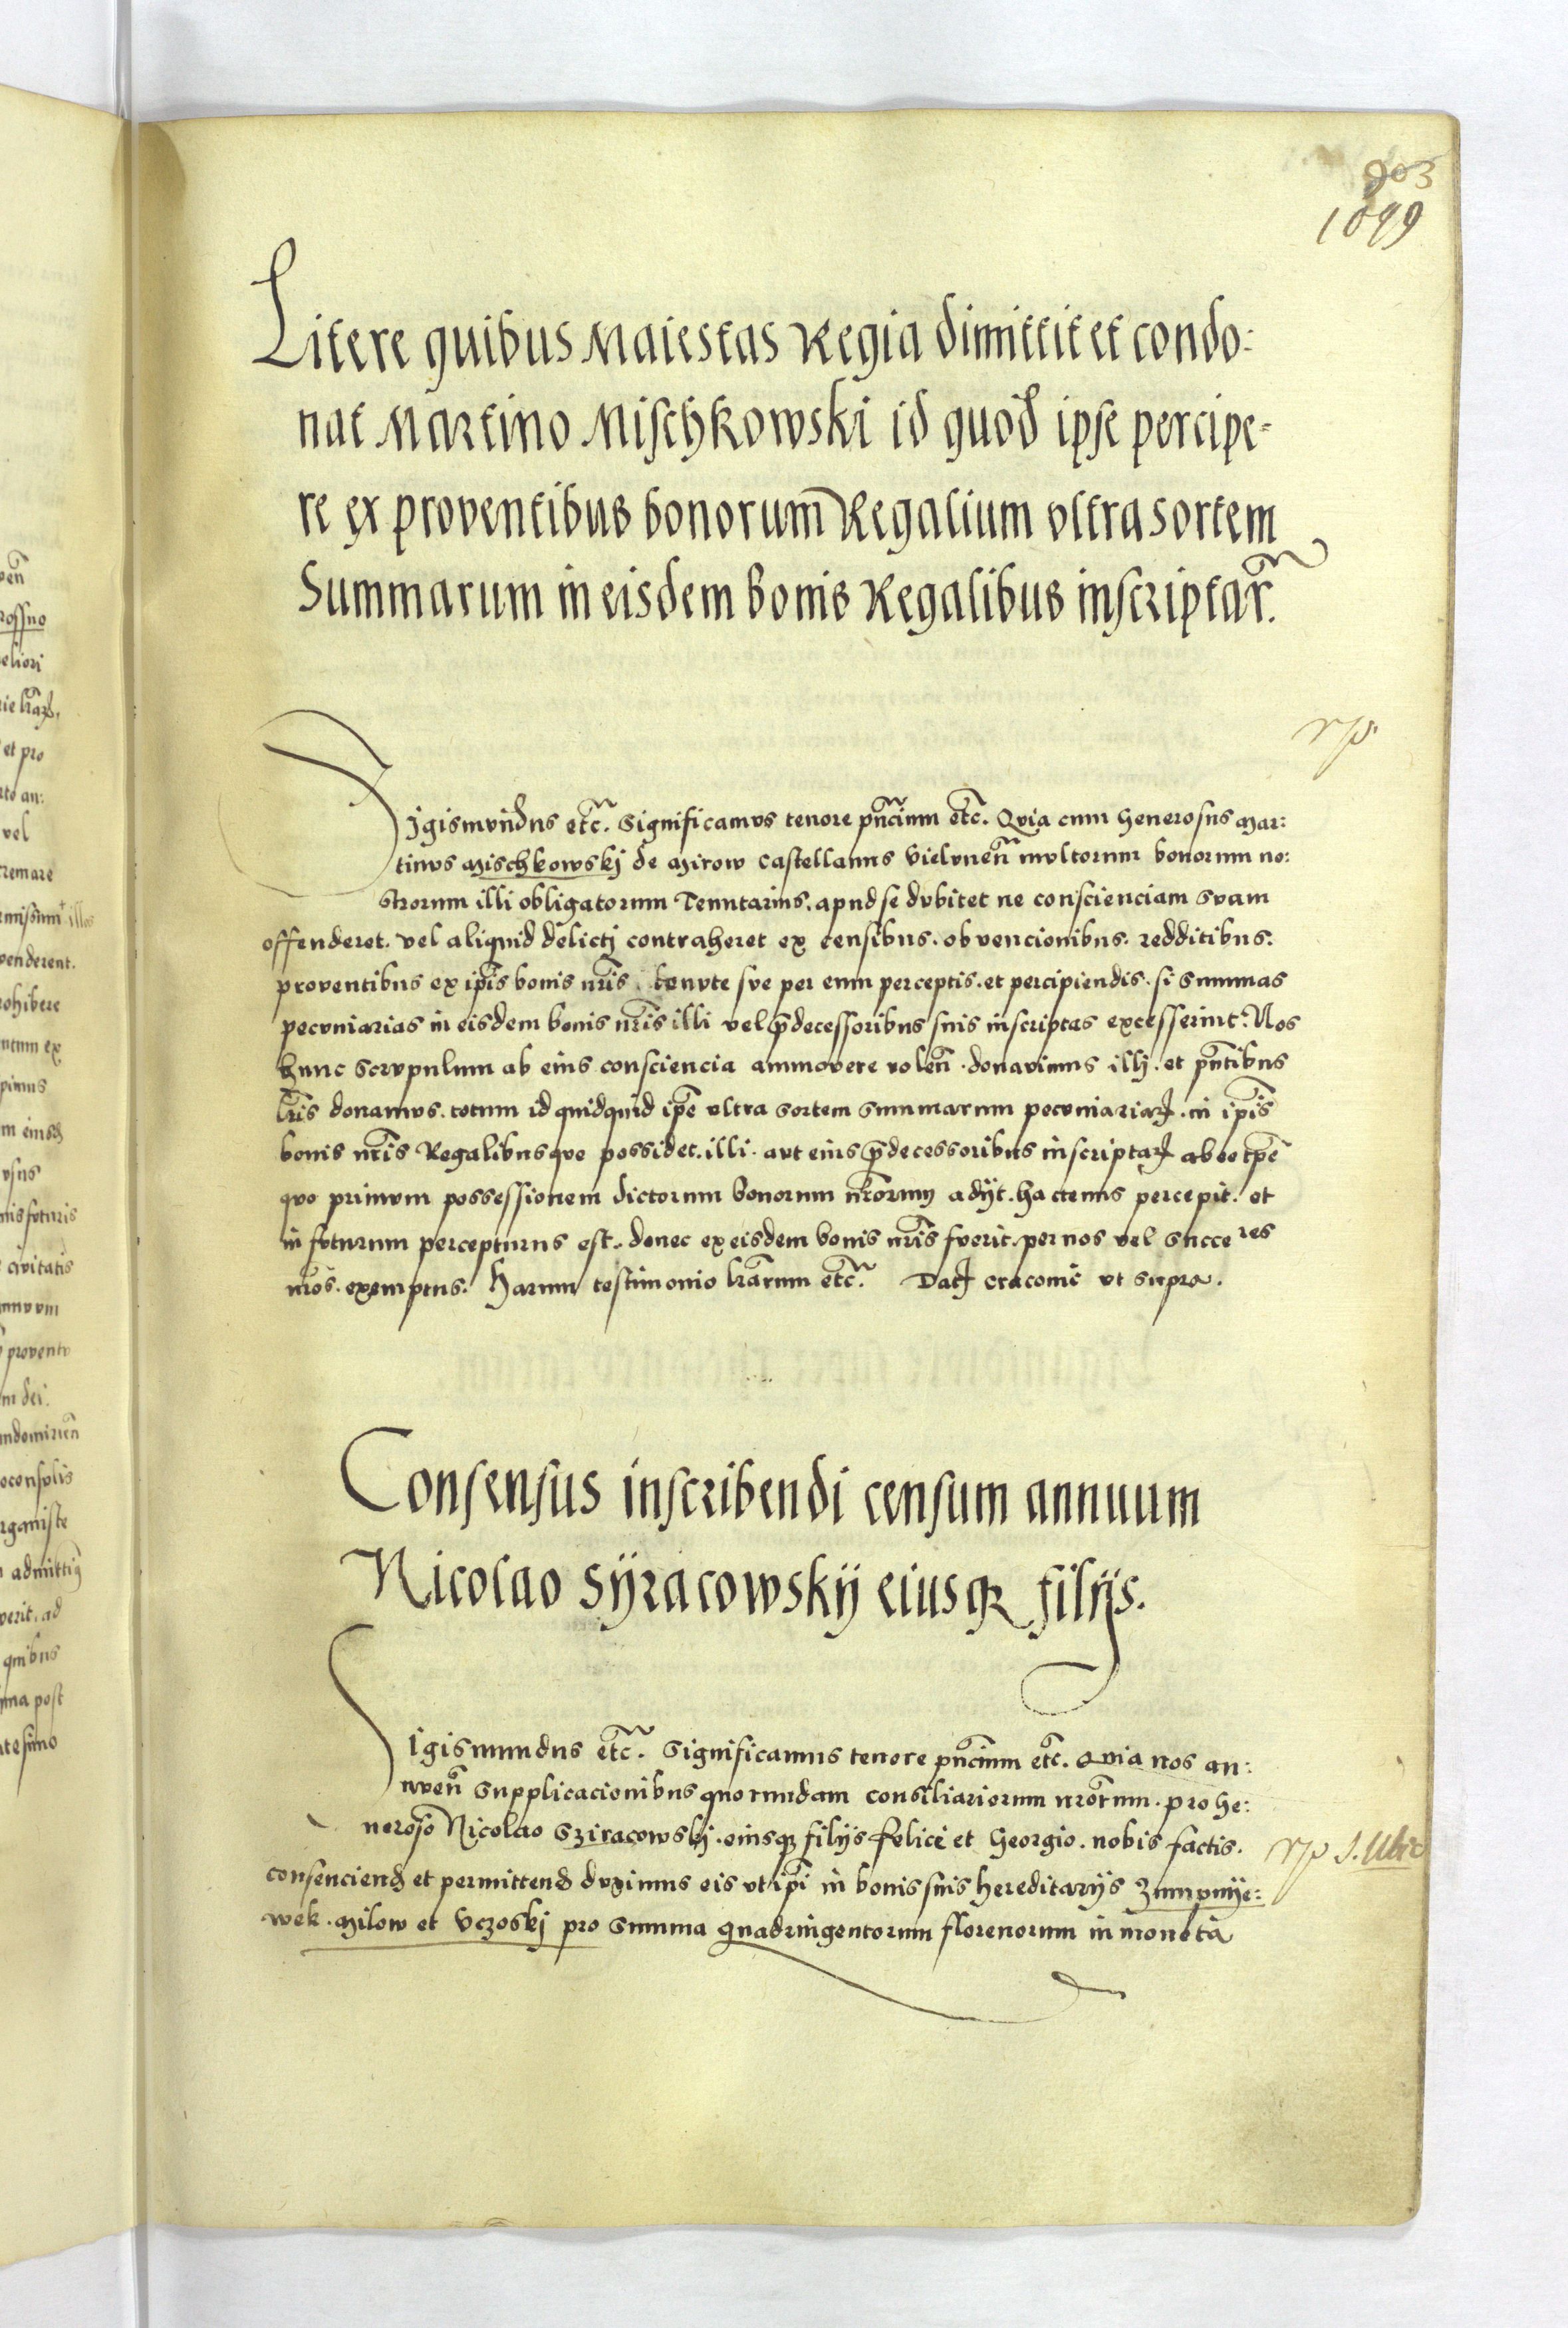 903
1099
Litere quibus Maiestas Regia dimittit et condo:
nat Martino Mischkowski id quod ipse percipe-
re ex proventibus bonorum Regalium vltra sortem
Summarum in eisdem bonis Regalibus inscriptar̃.
rp.
Sigismvndus etc̃. Significamvs tenore pñcium etc̃. Qvia cum Generosus Mar:
tinvs Mischkowskj de Mirow Castellanus Vielvneñ mvltorum bonorum no:
strorum illi obligatorum Tenutarius. apud se dvbitet ne conscienciam svam
offenderet. vel aliquid delictj contraheret ex censibus. obvencionibus. redditibus.
proventibus ex ip̃is bonis nr̃is tenvte sve per eum perceptis. et percipiendis. si summas
pecvniarias in eisdem bonis nr̃is illi vel p̃decessoribus suis inscriptas excesserint. Nos
hunc scrvpulum ab eius consciencia ammovere voleñ. donavimus illj. et pñtibus
lr̃is donamvs. totum id quidquid ip̃e vltra sortem summarum pecvniariaꝝ. in ip̃is
bonis nr̃is Regalibus que possidet. illi. avt eius p̃decessoribus inscriptaꝝ ab eo tp̃e
qvo primvm possessionem dictorum bonorum nr̃orum adijt. hactenus percepit. et
in fvturum percepturus est. donec ex eisdem bonis nr̃is fverit. per nos vel succe res
nr̃os. exemptus. Harum testimonio lr̃arum etc̃. Datꝝ Cracovie vt supra.
Consensus inscribendi censum annuum
Nicolao Sÿracowskÿ eiusqꝫ filijs.
Sigismundus etc̃. Significamus tenore pñcium etc̃. Qvia nos an:
nveñ supplicacionibus quorundam consiliariorum nr̃orum. pro Ge:
neroso Nicolao Sziracowskj. eiusqꝫ filijs Felici et Georgio. nobis factis.
rp J. Ubic
consenciend et permittend dvximus eis vt ip̃i in bonis suis hereditarijs Zumpnÿe:
wek. Milow et Vczoskj pro summa quadringentorum florenorum in moneta